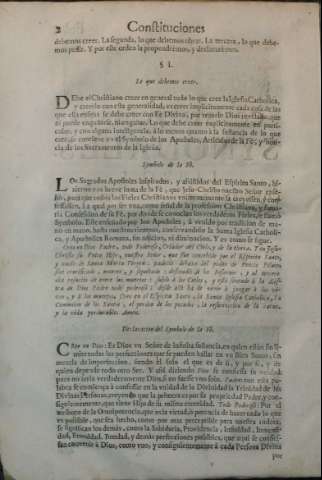 2 Constituciones
debemos creer. La segunda, lo que debemos obrar. La tercera, lo que debe-
mos pedir. Y por este orden la propondrèmos, y declararèmos.
§ I.
Lo que debemos creer.
DEbe el Christiano creer en general todo lo que cree la Iglesia Catholica,
y creerlo con esta generalidad, es creer implicitamente cada cosa de las
que ella enseña se debe creer con Fè Divina, por averlo Dios revelado, que
ni puede engañarse, ni engañar. Lo que debe creer explicitamente en parti-
cular, y con alguna inteligencia, à lo menos quanto à la substancia de lo que
cree, se contiene en el Symbolo de los Apostoles, Articulos de la Fè, y
de los Sacramentos de la Iglesia.
Symbolo de la Fè.
LOs Sagrados Apostoles inspirados, y assistidos del Espiritu Santo, hi-
zieron una breve suma de la Fè, que Jesu-Christo nuestro Señor
para que todos los Fieles Christianos la creyessen, y con-
fessassen. La qual por ser una, como señal de la profession Christiana, y
Confession de la Fè, por donde se conocen los verdaderos Fieles, se llama
Symbolo. Este ordenado por los Apostoles, à venido por tradicion de ma-
no en mano, hasta nuestros tiempos, conservandole la Santa Iglesia Catholi-
ca, y Apostolica Romana, sin adicion, ni diminucion. Y es como se sigue.
Creo en Dios Padre, todo Poderoso, Criador del Cielo, y de la tierra. Y en Jesu-
Christo su Unico Hijo, nuestro Señor, que fue concebido por el Espiritu Santo,
y nació de Santa Maria Virgen: padeciò debaxo del poder de Poncio Pilato,
fue crucificado, muerto, y sepultado: descendiò à los Infiernos, y al tercero
dia resucitò de entre los muertos: subiò à los Cielos, y està sentado à la dies-
tra de Dios Padre todo poderoso: desde allì ha de venir à juzgar à los vi-
vos, y à los muertos. Creo en el Espiritu Santo, la Santa Iglesia Catholica, la
Comunion de los Santos, el perdon de los pecados, la resurreccion de la carne,
y la vida perdurable. Amen.
Declaracion del Symbolo de la Fè.
CReo en Dios: Es Dios un Señor de en quien estàn in-
finitas todas las perfecciones que se pueden hallar en un bien Sumo, sin
mezcla de imperfeccion, siendo èl solo el que es de sì, y por sì, y de
quien depende todo otro Ser. Y assi diziendo Dios se confiessa la verdad,
pero no seria verdadero en Dios, si no fuesse uno solo. Padre: con esta pa-
labra se comiença à confessar en la unidad de la Divinidad la Trinidad de las
Divinas Personas, creyendo que la primera es por su propriedad Padre, y con-
siguientemente, que tiene Hijo de su misma entidad. Todo Poderoso: Por el
nombre de la Omnipotencia, que es la virtud, ò potencia de hazer todo lo que
es possible, que sea hecho, como por mas perceptible para nuestra rudeza,
se significan los demàs, como la Sabiduria, Providencia, Inmensi-
dad, Eternidad, Bondad, y demàs perfecciones possibles, que aqui se confies-
san convenir à Dios, como uno, y consiguientemente à cada Persona Divina
por